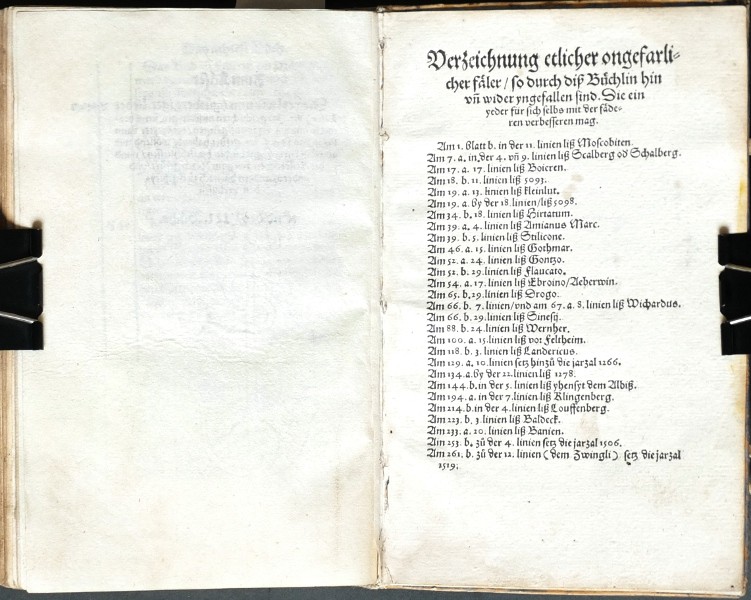 Verzeichnung etlicher ongefarli-
cher fäler / so durch diß Büchlin hin
vñ wider yngefallen sind. Die ein
yeder für sich selbs mit der fäde-
ren verbesseren mag.
Am 1. blatt b. in der 11. linien liß Moscobiten.
Am 7. a. in der 4. vñ 9. linien liß Scalberg od Schalberg.
Am 17. a. 17. linien liß Boieren.
Am 18. b. 11. linien liß 5093.
Am 19. a. 13. linien liß kleinlut.
Am 19. a. by der 18. linien/liß 5098.
Am 34. b. 18. linien liß Hirtarum.
Am 39. a. 4. linien liß Amianus Marc.
Am 39. b. 5. linien liß Stilicone.
Am 46. a. 15. linien liß Gothmar.
Am 52. a. 24. linien liß Gontzo.
Am 52. b. 29. linien liß Flaucato.
Am 54. a. 17. linien liß Ebroino/Aeherwin.
Am 65. b. 29. linien liß Drogo.
Am 66. b. 7. linien/vnd am 67. a. 8. linien liß Wichardus.
Am 66. b. 29. linien liß Sinesij.
Am 88. b. 24. linien liß Wernher.
Am 100. a. 15. linien liß vor Feltheim.
Am 118. b. 3. linien liß Landericus.
Am 129. a. 10. linien setz hinzů die jarzal 1266.
Am 134. a. by der 22. linien liß 1278.
Am 144. b. in der 5. linien liß yhensyt dem Albiß.
Am 194. a. in der 7. linien liß Klingenberg.
Am 214. b. in der 4. linien liß Louffenberg.
Am 223. b. 3. linien liß Baldeck.
Am 233. a. 20. linien liß Banien.
Am 253. b. zů der 4. linien setz die jarzal 1506.
Am 261. b. zů der 12. linien (dem Zwingli) setz die jarzal
1519.